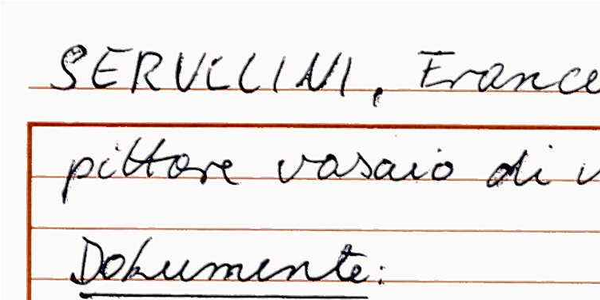 SERVLLINI, France
pittore vasaio di v
Dokumente: